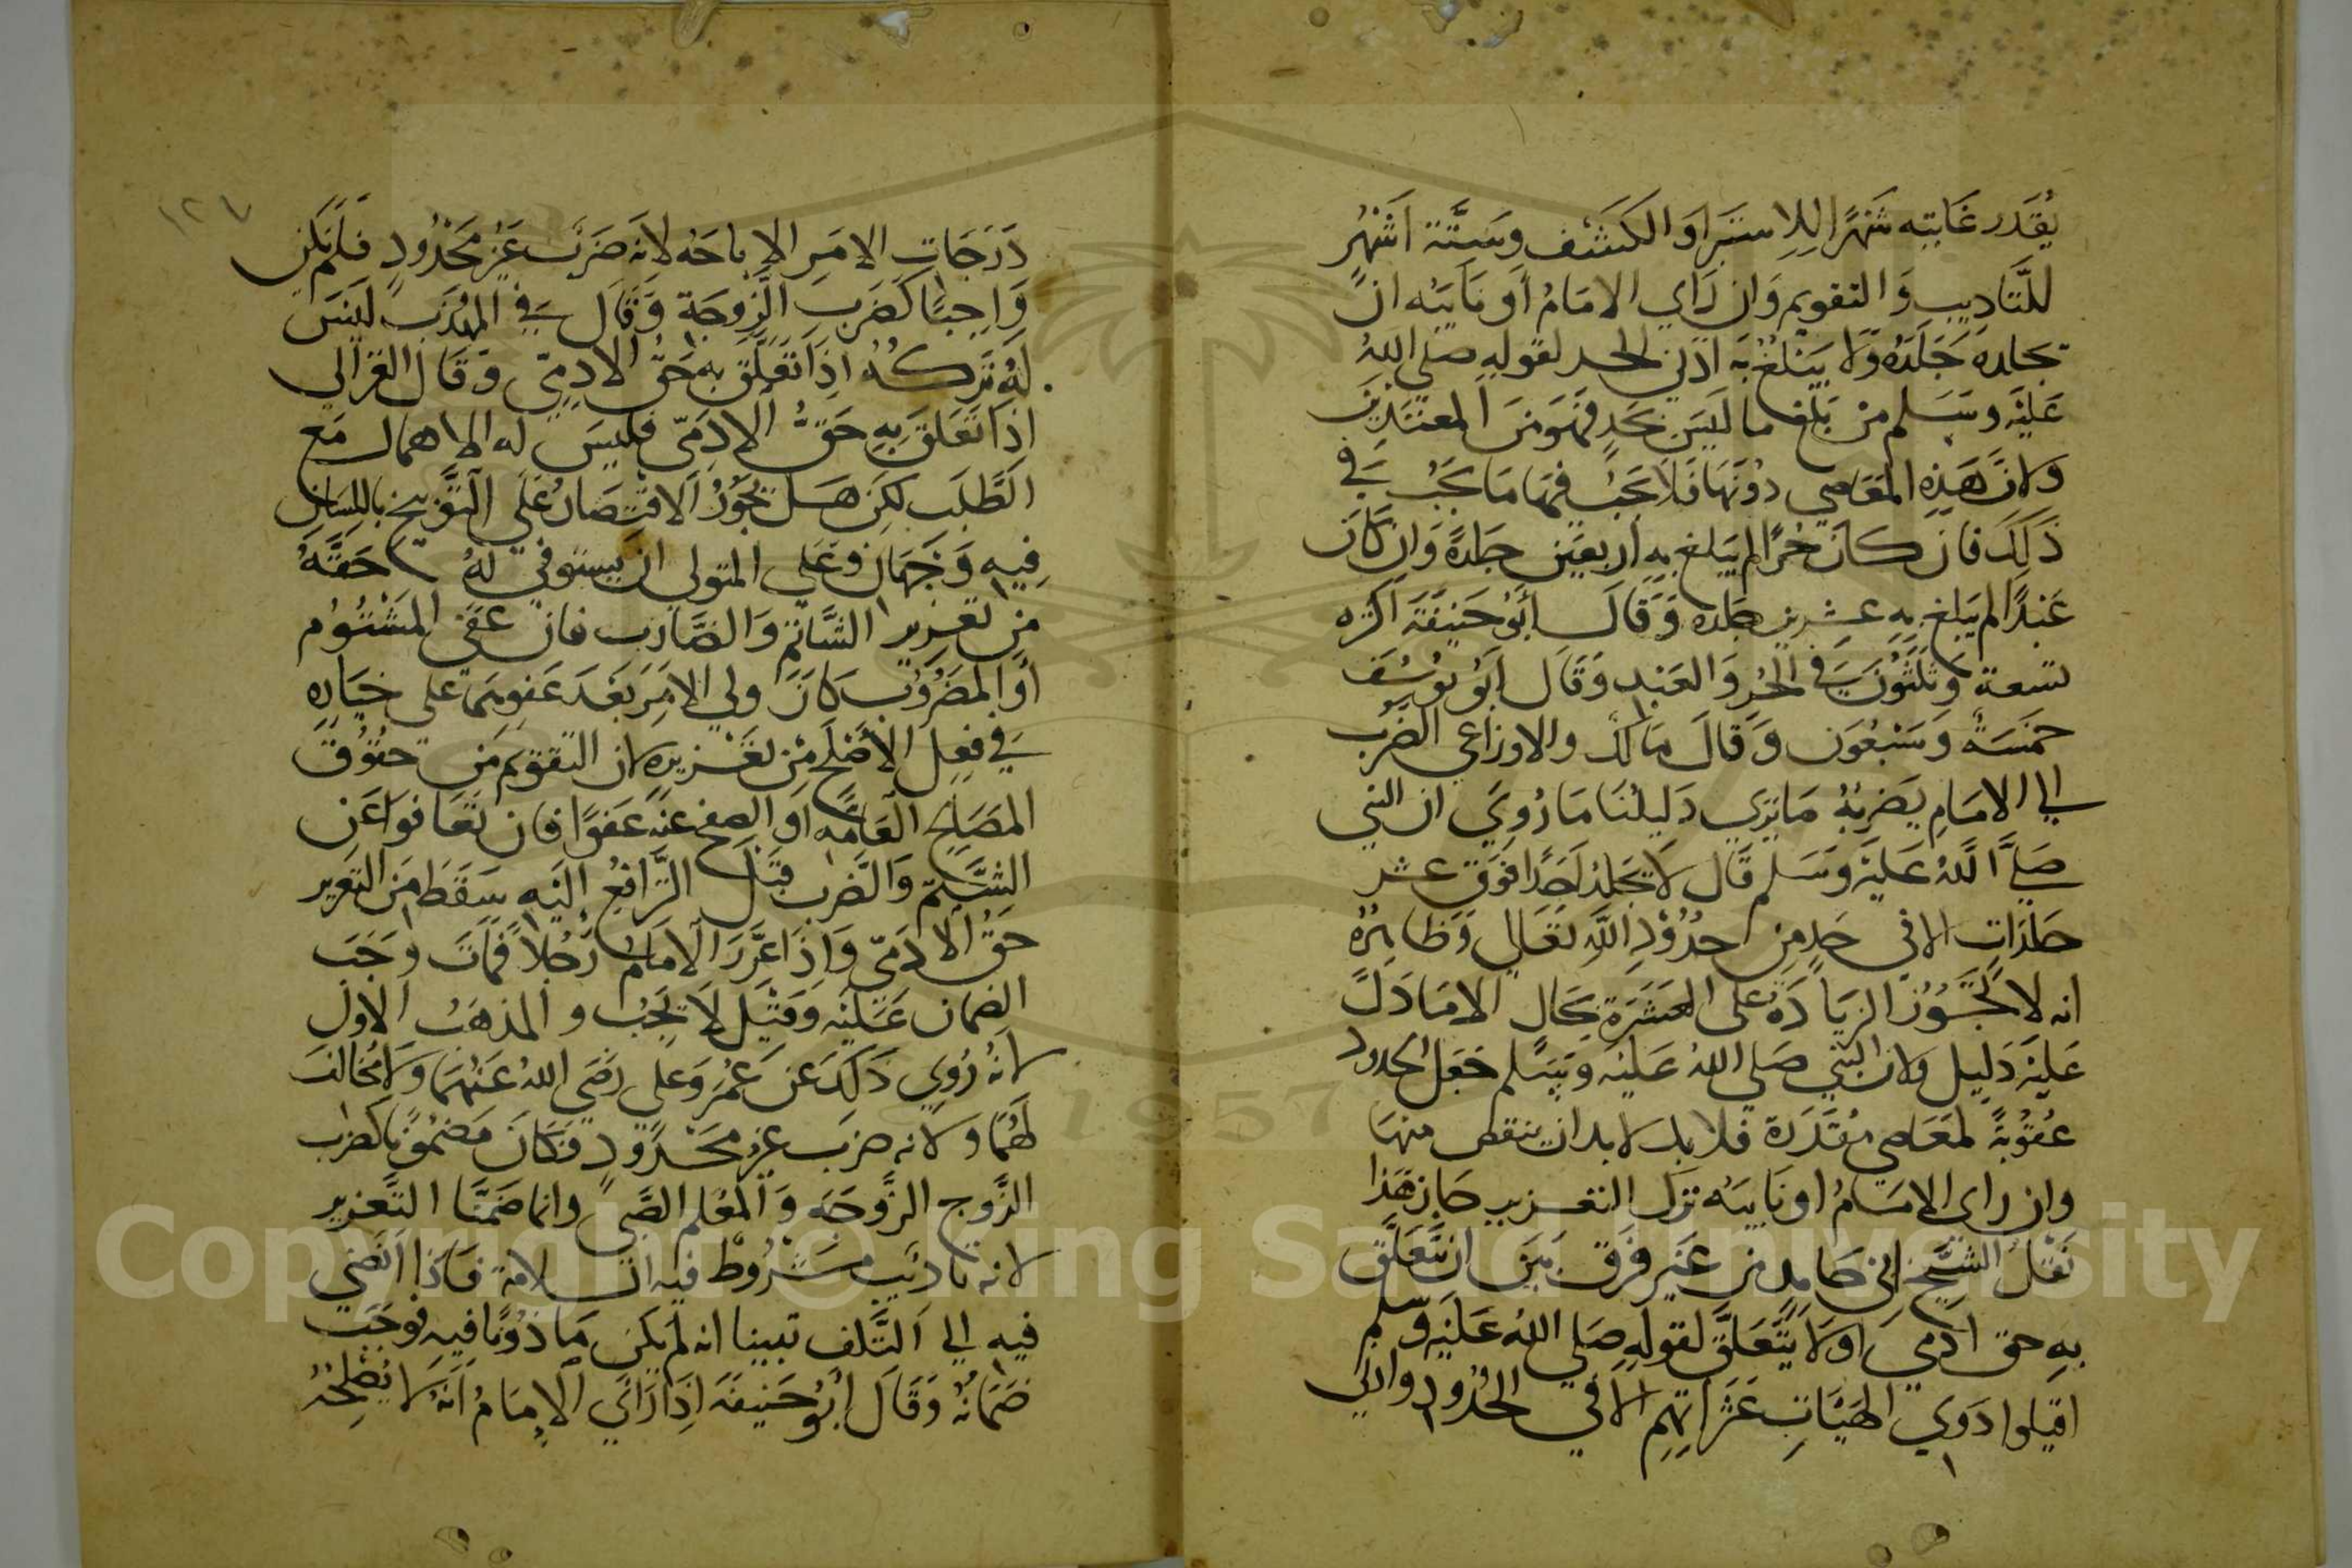 يُقَدر غَايته شَهرًا للاستبرَا وَالكَشف وسَتَّة اَشهُر
للتَّاديب وَالتقويم وَان رَاي الامَامُ أو نَايبَه ان
يجلده جَلَدَه وَلا يَبلغُ بَه أدَني الحد لقوله صلي اللهُ
عَليْه وسَلم من بَلغ ما ليسَ بحَدٍ فهوَ مِنَ المعتَدين
ولانَّ هَذِه المعَاصي دوُنهَا فَلاَ يجبُ فيها مَا يجَبُ في
ذلكَ فان كانَ حُرًا لم يَبلغ به أربعَين جلدةً وَان كانَ
عَبدًا لم يَبلغ به عشرين جلده وَقَالَ أبوُ حَنيفَة أكثره
تسعة وَثلثوُنَ في الحُر وَالعَبدِ وَقَال أبوُ يوُسُف
خمسَةٌ وَسَبعُون وَقَالَ مَالكٌ والاوزاعي الضربُ
الي الامَامِ يَضربُهُ مَا يَري دَليلُنَا مَا رُوِيَ ان النبي
صَلي اللهُ عَليْه وَسَلم قَال لاَ يجَلد أحَدًا فوَق عشر
جلدَات الا في حَدٍ مِن حدُوُدِ اللهِ تعَالي وَظاهِرُهُ
انه لا تجَوُزُ الزيَادَةُ علي العَشَرَة بحَال الا مَا دَلَّ
عَليْه دَليل ولان النبي صَلي اللهُ عَليْه وَسَلم جَعَل الحدود
عُقوُبَةً لمعَاصي مُقَدَّرَة فلا بد لا بد ان ينقص منهَا
وان راي الامَامُ او نَايبَه ترَك التعزير جَاز هَذا
نَقَلُ الشيَّخ ابي حَامِد مِن غَير فَرَق بَين ان يَتَّعَلَّق
به حق ادَمي اوَ لا يَتَّعَلَّق لقوله صَلي اللهُ عَليْه وَسَلم
اقيلوا ذوَي الهَيَاتِ عَثَراتِهِم الا في الحُدوُد وادني
١٢٧
دَرَجَاتِ الامَر الاباحَه لانه ضَرَبٌ غَيرُ محَدُودٍ فَلَم يَكن
وَاجبًا كضَربِ الزَّوجَة وَقَال في المهَذب ليسَ
لهُ تَركُه اذَا تَعَلَّق به حَق الادمِيّ وَقَال الغزالي
اذا تَعَلق بِهِ حَقُّ الادَمِيّ فليسَ له الاهمال مَع
الطَّلَب لكِن هَل يجَوُزُ الاقتصَارُ عَلي التَّوبيخ باللسَان
فيه وَجهَان وعَلي المتولي ان يستوفي لهُ حَقَّهُ
من تَعَزير الشَّاتم وَالضَّارب فان عفَي المَشْتوُم
أوِ المَضرُوُب كانَ ولي الامَر بَعَد عَفوِهمَا علي خيَارِهِ
في فعِل الأصَلح مِن تعَزيره لان التقويم مِن حقُوُق
المصَالِح العَامَّه اوَ الصفح عَنه عَفوًا فان تعَافوَا عَن
الشَّتم وَالضَّرب قبَل الترَّافعُ إليَه سَقَط مِنَ التعزير
حَقُ الادَمِيّ وَاِذَا عَزَّرَ الامَامُ رَجُلاً فمَاتَ وجَبَ
الضمان عَليْه وَقيَل لاَ يجَبُ والمذهَبُ الاول
لانهُ رُوِي ذلكَ عَن عُمَرَ وَعلي رضَي اللهُ عَنهُمَا وَلا مُخَالفَ
لهمُا ولانه ضربَ غير محَدوُد فكانَ مَضموُنًا كضرب
الزَّوج الزَّوجَه وَالمعَلم الصَّبي وانما ضَمنَّا التَّعزير
لانه تَاديَب مشرُوُط فيه السلامة فَاذا اَفضي
فيه الي التَّلف تبينا انه لم يَكن مَاذوُنًا فيه فوجَبَ
ضَمَانهُ وَقَالَ أبوُ حَنيفَه اِذَا رَأَي الامَامُ انهُ لا يُصْلِحُهُ